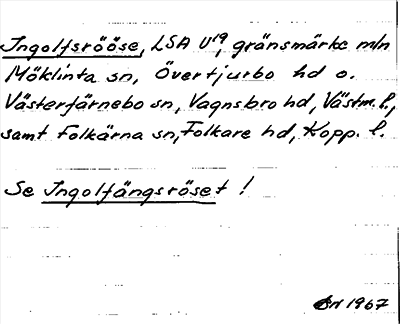 Ingolfsrööse, LSA U19, gränsmärke m/n
Möklinta sn, Övertjurbo hd o.
Västerfärnebo sn, Vagnsbro hd, Västm. l.,
samt Folkärna sn, Folkare hd, Kopp. l.
Se Ingolfängsröset !
1967